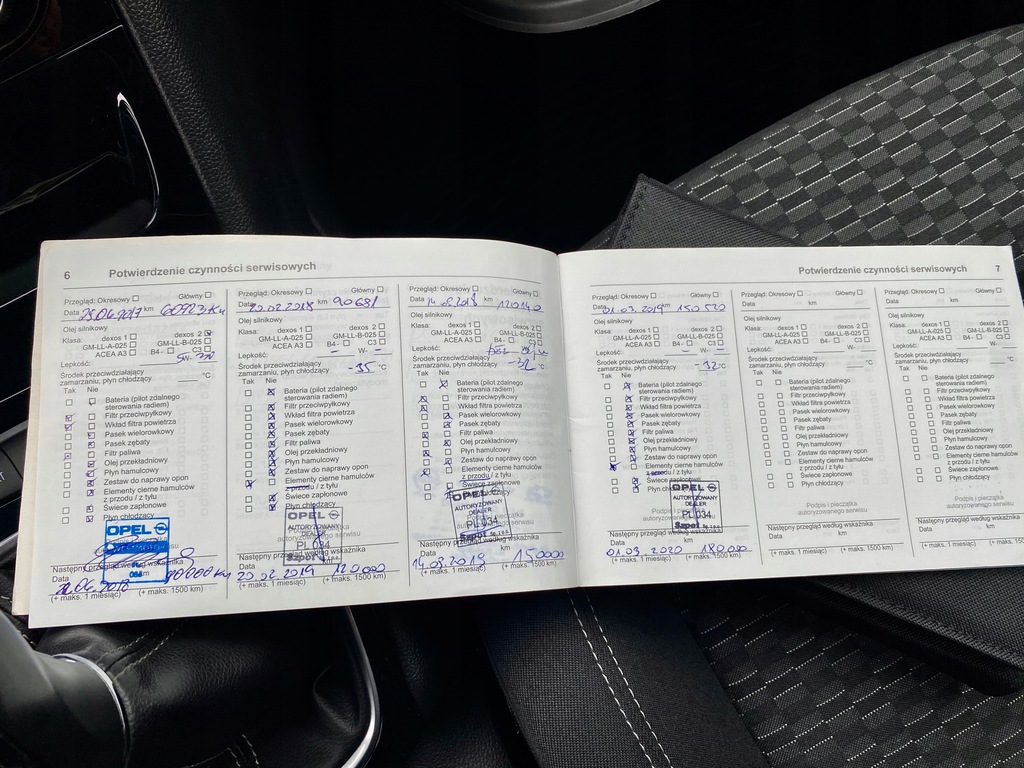 6 Potwierdzenie czynności serwisowych
Przegląd: Okresowy Główny
Data km
Olej silnikowy
Klasa: dexos 1 dexos 2
GM-LL-A-025 GM-LL-B-025
ACEA A3 B4- C3
Lepkość:
Środek przeciwdziałający
zamarzaniu, płyn chłodzący °C
Tak Nie
Bateria (pilot zdalnego
sterowania radiem)
Filtr przeciwpyłkowy
Wkład filtra powietrza
Pasek wielorowkowy
Pasek zębaty
Filtr paliwa
Olej przekładniowy
Płyn hamulcowy
Zestaw do naprawy opon
Elementy cierne hamulców
z przodu / z tyłu
Świece zapłonowe
Płyn chłodzący
OPEL
Następny przegląd według wskaźnika
Data km
(+ maks. 1 miesiąc) (+ maks. 1500 km)
Przegląd: Okresowy Główny
Data 20.02.2018 km 90681
Olej silnikowy
Klasa: dexos 1 dexos 2
GM-LL-A-025 GM-LL-B-025
ACEA A3 B4- C3
Lepkość: - W- -
Środek przeciwdziałający
zamarzaniu, płyn chłodzący -35 °C
Tak Nie
Bateria (pilot zdalnego
sterowania radiem)
Filtr przeciwpyłkowy
Wkład filtra powietrza
Pasek wielorowkowy
Pasek zębaty
Filtr paliwa
Olej przekładniowy
Płyn hamulcowy
Zestaw do naprawy opon
Elementy cierne hamulców
z przodu / z tyłu
Świece zapłonowe
Płyn chłodzący
OPEL
AUTORYZOWANY
DEALER
PL 034
Następny przegląd według wskaźnika
Data 20.02.2019 km 120000
(+ maks. 1 miesiąc) (+ maks. 1500 km)
Przegląd: Okresowy Główny
Data km
Olej silnikowy
Klasa: dexos 1 dexos 2
GM-LL-A-025 GM-LL-B-025
ACEA A3 B4- C3
Lepkość:
Środek przeciwdziałający
zamarzaniu, płyn chłodzący °C
Tak Nie
Bateria (pilot zdalnego
sterowania radiem)
Filtr przeciwpyłkowy
Wkład filtra powietrza
Pasek wielorowkowy
Pasek zębaty
Filtr paliwa
Olej przekładniowy
Płyn hamulcowy
Zestaw do naprawy opon
Elementy cierne hamulców
z przodu / z tyłu
Świece zapłonowe
Płyn chłodzący
OPEL
AUTORYZOWANY
DEALER
PL 034
Następny przegląd według wskaźnika
Data km
(+ maks. 1 miesiąc) (+ maks. 1500 km)
Potwierdzenie czynności serwisowych 7
Przegląd: Okresowy Główny
Data 01.03.2019 km 150520
Olej silnikowy
Klasa: dexos 1 dexos 2
GM-LL-A-025 GM-LL-B-025
ACEA A3 B4- C3
Lepkość: - W- -
Środek przeciwdziałający
zamarzaniu, płyn chłodzący -32 °C
Tak Nie
Bateria (pilot zdalnego
sterowania radiem)
Filtr przeciwpyłkowy
Wkład filtra powietrza
Pasek wielorowkowy
Pasek zębaty
Filtr paliwa
Olej przekładniowy
Płyn hamulcowy
Zestaw do naprawy opon
Elementy cierne hamulców
z przodu / z tyłu
Świece zapłonowe
Płyn chłodzący
OPEL
AUTORYZOWANY
DEALER
PL 034
Następny przegląd według wskaźnika
Data 01.03.2020 km 180000
(+ maks. 1 miesiąc) (+ maks. 1500 km)
Przegląd: Okresowy Główny
Data km
Olej silnikowy
Klasa: dexos 1 dexos 2
GM-LL-A-025 GM-LL-B-025
ACEA A3 B4- C3
Lepkość: W-
Środek przeciwdziałający
zamarzaniu, płyn chłodzący °C
Tak Nie
Bateria (pilot zdalnego
sterowania radiem)
Filtr przeciwpyłkowy
Wkład filtra powietrza
Pasek wielorowkowy
Pasek zębaty
Filtr paliwa
Olej przekładniowy
Płyn hamulcowy
Zestaw do naprawy opon
Elementy cierne hamulców
z przodu / z tyłu
Świece zapłonowe
Płyn chłodzący
Podpis i pieczątka
autoryzowanego serwisu
Następny przegląd według wskaźnika
Data km
(+ maks. 1 miesiąc) (+ maks. 1500 km)
Przegląd: Okresowy Główny
Data km
Olej silnikowy
Klasa: dexos 1 dexos 2
GM-LL-A-025 GM-LL-B-025
ACEA A3 B4- C3
Lepkość: W-
Środek przeciwdziałający
zamarzaniu, płyn chłodzący °C
Tak Nie
Bateria (pilot zdalnego
sterowania radiem)
Filtr przeciwpyłkowy
Wkład filtra powietrza
Pasek wielorowkowy
Pasek zębaty
Filtr paliwa
Olej przekładniowy
Płyn hamulcowy
Zestaw do naprawy opon
Elementy cierne hamulców
z przodu / z tyłu
Świece zapłonowe
Płyn chłodzący
Podpis i pieczątka
autoryzowanego serwisu
Następny przegląd według wskaźnika
Data km
(+ maks. 1 miesiąc) (+ maks. 1500 km)